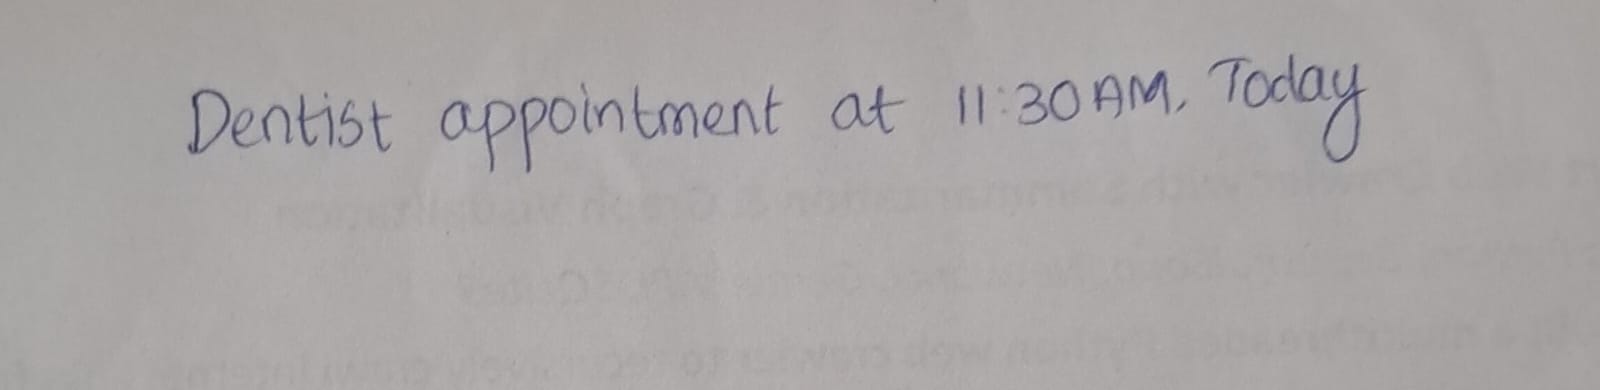 Dentist appointment at 11:30 AM, Today